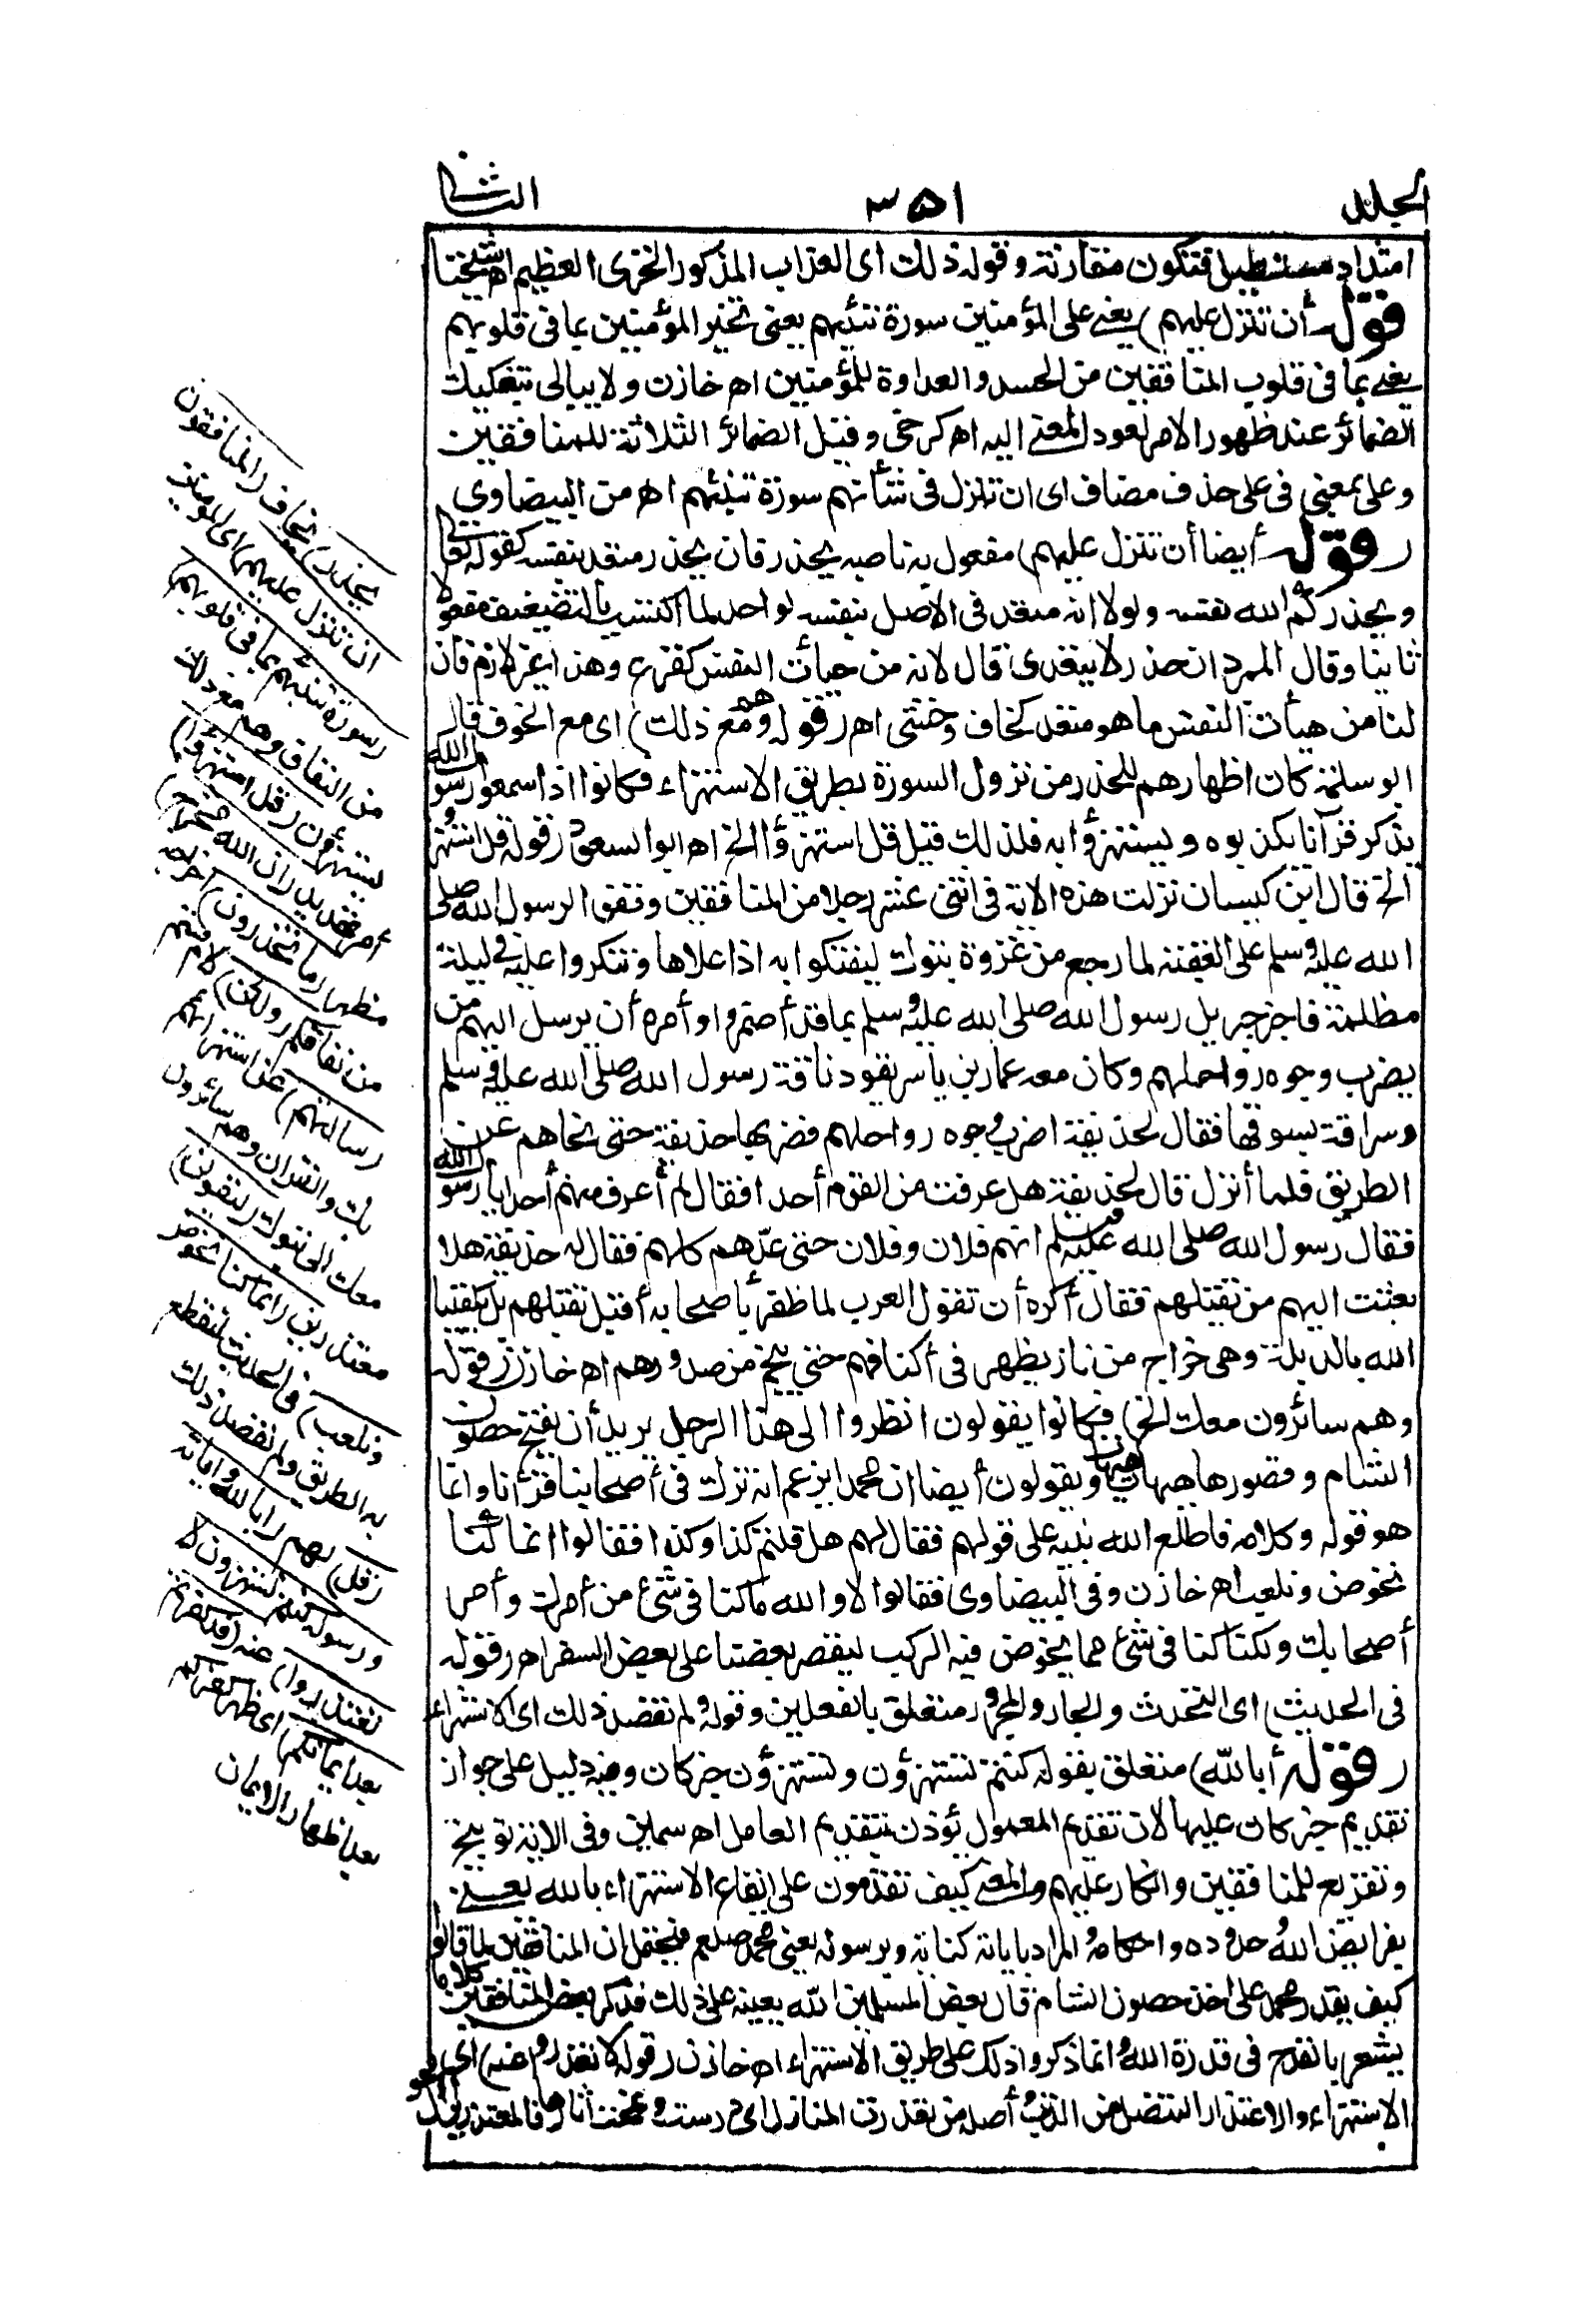 الجلد
٣٥١
الثانى
امتداد مستطيل فتكون مقارنة وقوله ذلك اى العذاب المذكور الخزى العظيم اه شيخنا
قوله أن تنزل عليهم) يعنى على المؤمنين سورة تنبئهم يعنى تخبر المؤمنين بما فى قلوبهم
يعنى بما فى قلوب المنافقين من الحسد والعداوة للمؤمنين اه خازن ولا يبالى بتفكيك
الضمائر عند ظهور الامر لعود المعنى اليه اه كرخى وقيل الضمائر الثلاثة للمنافقين
وعلى بمعنى فى على حذف مضاف اى ان تنزل فى شأنهم سورة تنبئهم اه من البيضاوى
(قوله أيضا أن تنزل عليهم) مفعول به ناصبه يحذر فان يحذر متعد بنفسه كقوله تعالى
ويحذركم الله نفسه ولولا انه متعد فى الاصل بنفسه لواحد لما اكتسب بالتضعيف مفعولا
ثانيا وقال المبرد ان حذر لا يتعدى قال لانه من هيأت النفس كفزع وهذا غير لازم فان
لنا من هيأت النفس ما هو متعد كخاف وخشى اه (قوله وهم مع ذلك) اى مع الخوف قال
ابو سلمة كان اظهارهم للحذر من نزول السورة بطريق الاستهزاء فكانوا اذا سمعوا رسول الله
يذكر قرآنا يكذبوه ويستهزؤا به فلذلك قيل قل استهزؤا الخ اه ابو السعود (قوله قل استهزؤا
الخ قال ابن كيسان نزلت هذه الاية فى اثنى عشر رجلا من المنافقين وقفوا لرسول الله صلى
الله عليه وسلم على العقبة لما رجع من غزوة تبوك ليفتكوا به اذا علاها وتنكروا عليه فى ليلة
مظلمة فاخبر جبريل رسول الله صلى الله عليه وسلم بما قد أضمروا وأمره أن يرسل اليهم من
يضرب وجوه رواحلهم وكان معه عمار بن ياسر يقود ناقة رسول الله صلى الله عليه وسلم
وسراقة يسوقها فقال لحذيفة اضرب وجوه رواحلهم فضربها حذيفة حتى نحاهم عن
الطريق فلما أنزل قال لحذيفة هل عرفت من القوم أحدا فقال لم أعرف منهم أحدا يا رسول الله
فقال رسول الله صلى الله عليه وسلم انهم فلان وفلان حتى عدّهم كلهم فقال له حذيفة هلا
بعثت اليهم من يقتلهم فقال أكره أن تقول العرب لما ظفر بأصحابه أقبل يقتلهم بل يكفينا
الله بالدبيلة وهى خراج من نار يظهر فى أكتافهم حتى ينجم من صدورهم اه خازن (قوله
وهم سائرون معك الخ) فكانوا يقولون انظروا الى هذا الرجل يريد أن يفتح حصون
الشام وقصورها هيهات هيهات ويقولون أيضا ان محمدا يزعم انه نزل فى أصحابنا قرأنا وانما
هو قوله وكلامه فاطلع الله نبيه على قولهم فقال لهم هل قلتم كذا وكذا فقالوا انما كنا
نخوض ونلعب اه خازن وفى البيضاوى فقالوا لا والله ما كنا فى شئ من أمرك وأمر
أصحابك ولكنا كنا فى شئ مما يخوض فيه الركب ليقصر بعضنا على بعض السفر اه (قوله
فى الحديث) اى التحدث والجار والمجرور متعلق بالفعلين وقوله ولم نقصد ذلك اى الاستهزاء
(قوله أبالله) متعلق بقوله كنتم تستهزؤن وتستهزؤن خبر كان وفيه دليل على جواز
تقديم خبر كان عليها لان تقديم المعمول يؤذن بتقديم العامل اه سمين وفى الاية توبيخ
وتقريع للمنافقين وانكار عليهم والمعنى كيف تقدمون على ايقاع الاستهزاء بالله يعنى
بفرايض الله وحدوده واحكامه والمراد باياته كتابه وبرسوله يعنى محمد صلعم فيحتمل ان المنافقين لما قالوا
كيف يقدر محمد على اخذ حصون الشام قال بعض المسلمين الله يعينه على ذلك فذكر بعض المنافقين كلاما
يشعر بالقدح فى قدرة الله وانما ذكروا ذلك على طريق الاستهزاء اه خازن (قوله لا تعتذروا عنه) اى
الاستهزاء والاعتذار التنصل من الذنب وأصله من تعذرت المنازل اى درست وامحت أثارها فالمعتذر يزاول محو
(يحذر) يخاف (المنافقون
ان تنزل عليهم) اى المؤمنين
(سورة تنبئهم بما فى قلوبهم)
من النفاق وهم مع ذلك
يستهزؤن (قل استهزؤا)
أمر تهديد (ان الله مخرج)
مظهر (ما تحذرون) اخراجه
من نفاقكم (ولئن) لام قسم
(سألتهم) عن استهزائهم
بك والقرآن وهم سائرون
معك الى تبوك (ليقولن)
معتذرين (انما كنا نخوض
ونلعب) فى الحديث لنقطع
به الطريق ولم نقصد ذلك
(قل) لهم (ابالله واياته
ورسوله كنتم تستهزؤن لا
تعتذروا) عنه (قد كفرتم
بعد ايمانكم) اى ظهر كفركم
بعد اظهار الايمان